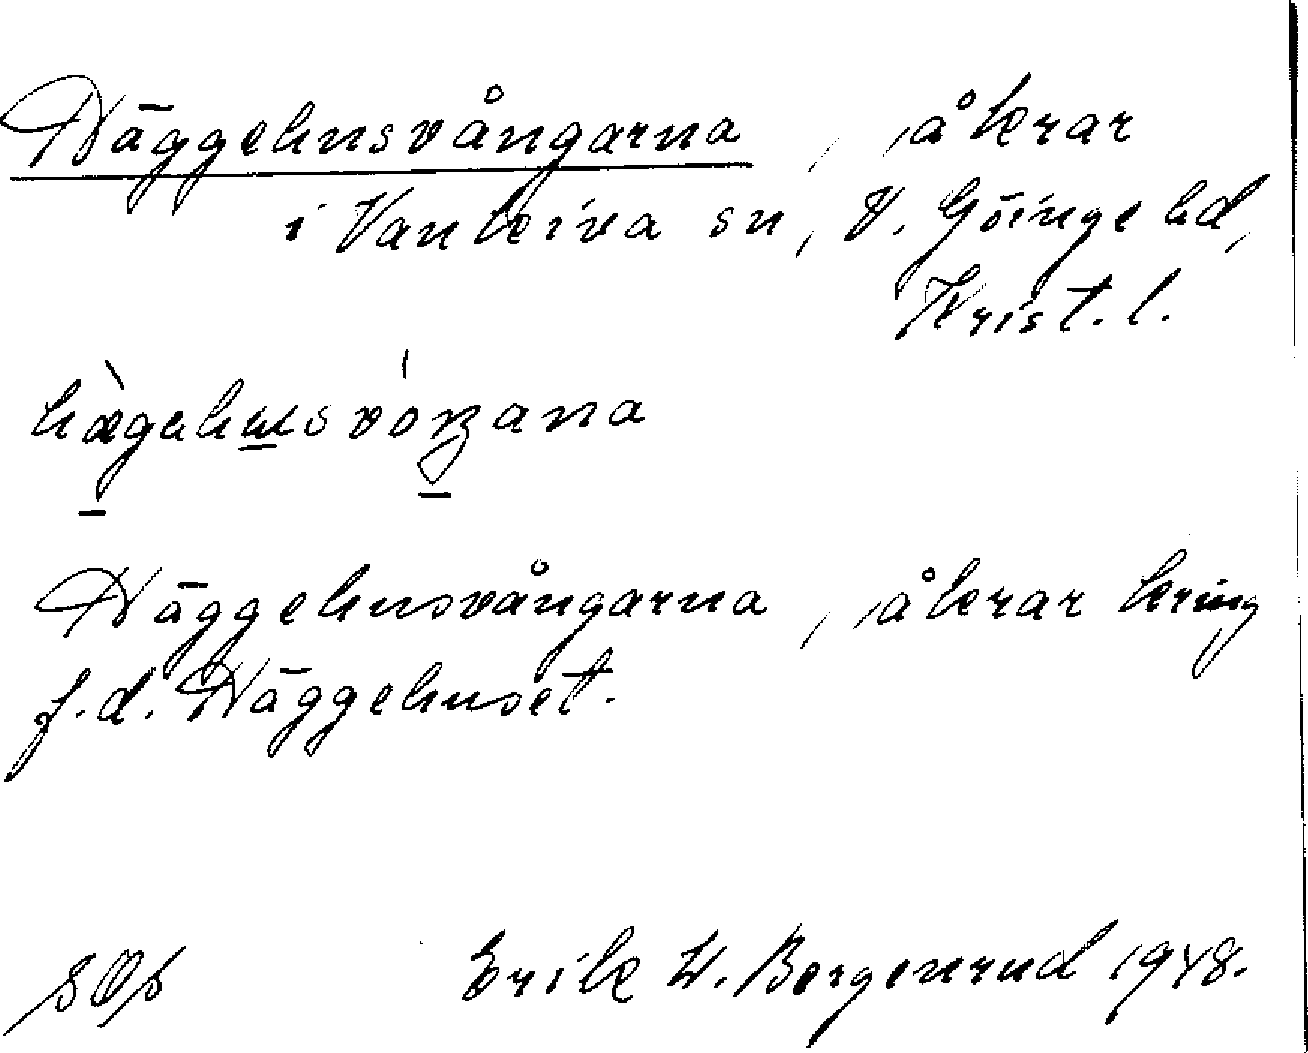 Häggehusvångarna, åkrar
i Vankiva sn, V. Göinge hd,
Krist. l.
hægehusvóŋana
Häggehusvångarna, åkrar kring
f.d. Häggehuset.
Erik W. Bergenrud 1948.